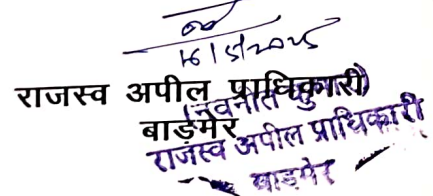 16/5/2025
राजस्व अपील प्राधिकारी
(नवनीत कुमार)
बाड़मेर
राजस्व अपील प्राधिकारी
बाड़मेर